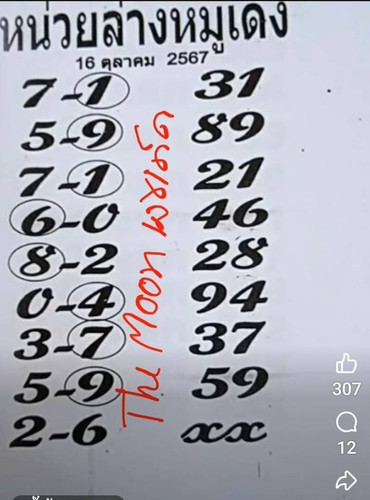 หน่วยล่างหมูเด้ง
16 ตุลาคม 2567
7-1 31
5-9 89
7-1 21
6-0 46
8-2 28
0-4 94
3-7 37
5-9 59
2-6 xx
The Moon
307
12